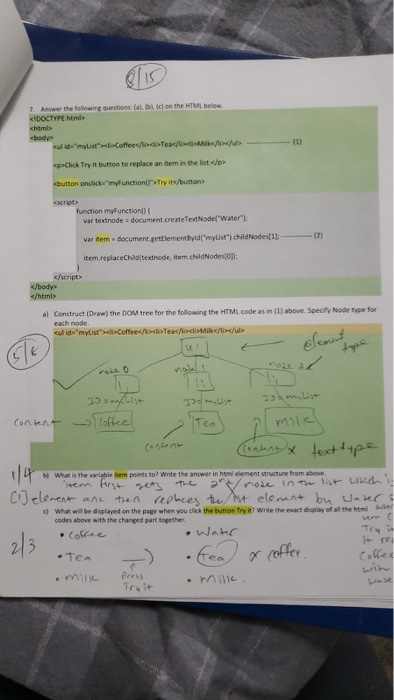 8/15
7. Answer the following questions (a), (b), (c) on the HTML below.
<!DOCTYPE html>
<html>
<body>
<ul id="myList"><li>Coffee</li><li>Tea</li><li>Milk</li></ul> (1)
<p>Click Try it button to replace an item in the list.</p>
<button onclick="myFunction()">Try it</button>
<script>
function myFunction() {
var textnode = document.createTextNode("Water");
var item = document.getElementById("myList").childNodes[1]; (2)
item.replaceChild(textnode, item.childNodes[0]);
}
</script>
</body>
</html>
a) Construct (Draw) the DOM tree for the following the HTML code as in (1) above. Specify Node type for
each node.
<ul id="myList"><li>Coffee</li><li>Tea</li><li>Milk</li></ul>
5/8
ul
element type
node 0
li
li
li
Content
Coffee
Tea
milk
Content
Content x text type
1/4
b) What is the variable item points to? Write the answer in html element structure from above.
item first gets the 2nd node in the list which is
[1] element and then replaces the 1st element by water
c) What will be displayed on the page when you click the button Try it? Write the exact display of all the html
codes above with the changed part together.
2/3
• Coffee
• Tea
• milk
Press
Try it
• Water
• Tea x coffer.
• Milk.
Try it
Coffee
with